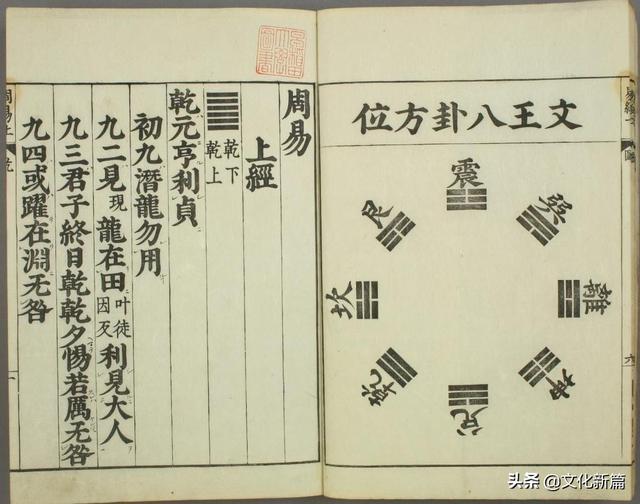 文王八卦方位
震
巽
離
坤
兌
乾
坎
艮
周易
上經
乾下
乾上
乾元亨利貞
初九潛龍勿用
九二見現龍在田叶徒因反利見大人
九三君子終日乾乾夕惕若厲无咎
九四或躍在淵无咎
周易上
乾
一
头条 @文化新篇